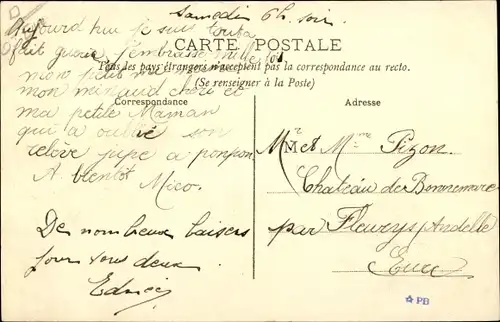 Samedi 6h. soir
Aujourd'hui je suis tout a
fait guérie J'embrasse mille fois
CARTE POSTALE
Tous les pays étrangers n'acceptent pas la correspondance au recto.
(Se renseigner à la Poste)
mon petit
mon minaud chéri et
Correspondance
Adresse
ma petite Maman
qui a oublié son
relève jupe a ponpon
A bientôt
Mico.
De nombreux baisers
pour vous deux
M.r et M.me Pizon.
Château de Bonnemare
par Fleury s/ Andelle
Eure
PB